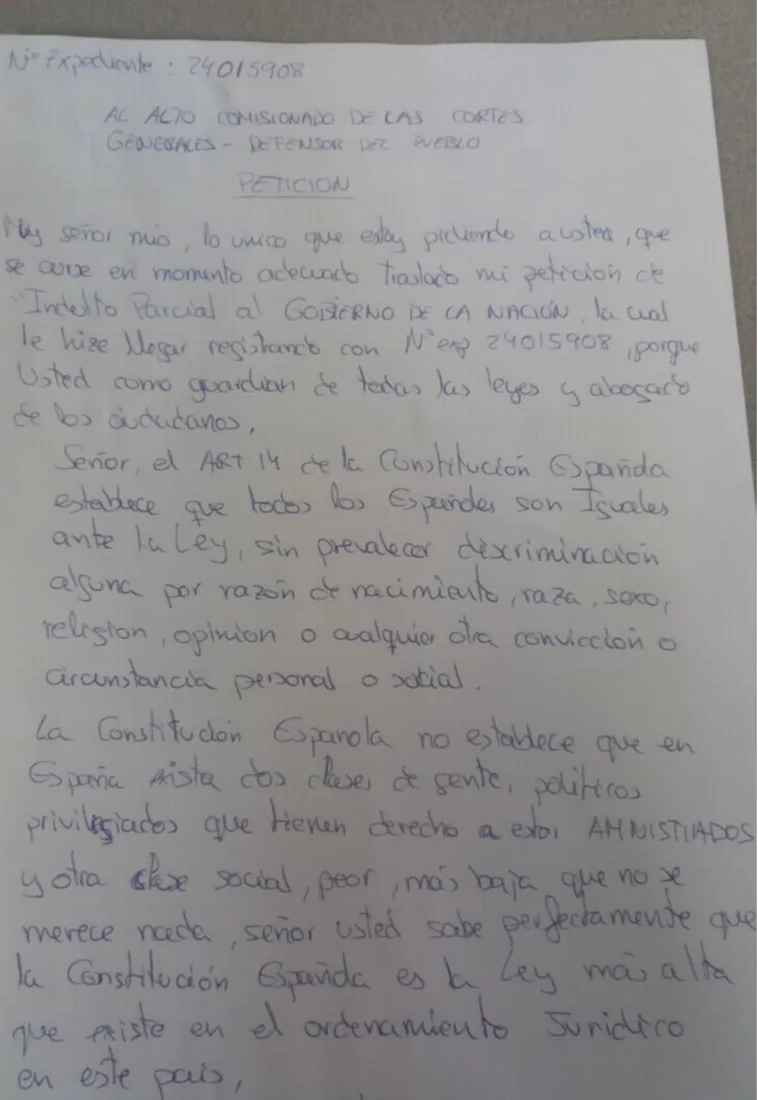 Nº Expediente : 24015908
AL ALTO COMISIONADO DE LAS CORTES
GENERALES - DEFENSOR DEL PUEBLO
PETICION
Muy señor mio, lo unico que estoy pidiendo a usted, que
se curse en momento adecuado traslado mi peticion de
Indulto Parcial al GOBIERNO DE LA NACIÓN, la cual
le hize llegar registrando con Nºexp 24015908, porque
Usted como guardian de todas las leyes y abogado
de los ciudadanos,
Señor, el ART 14 de la Constitución Española
establece que todos los Españoles son Iguales
ante la Ley, sin prevalecer discriminación
alguna por razón de nacimiento, raza, sexo,
religion, opinion o cualquier otra convicción o
circunstancia personal o social.
La Constitución Espanola no establece que en
España exista dos clases de gente, politicos
privilegiados que tienen derecho a estar AMNISTIADOS
y otra clase social, peor, más baja que no se
merece nada, señor usted sabe perfectamente que
la Constitución Española es la Ley más alta
que existe en el ordenamiento Juridico
en este pais,